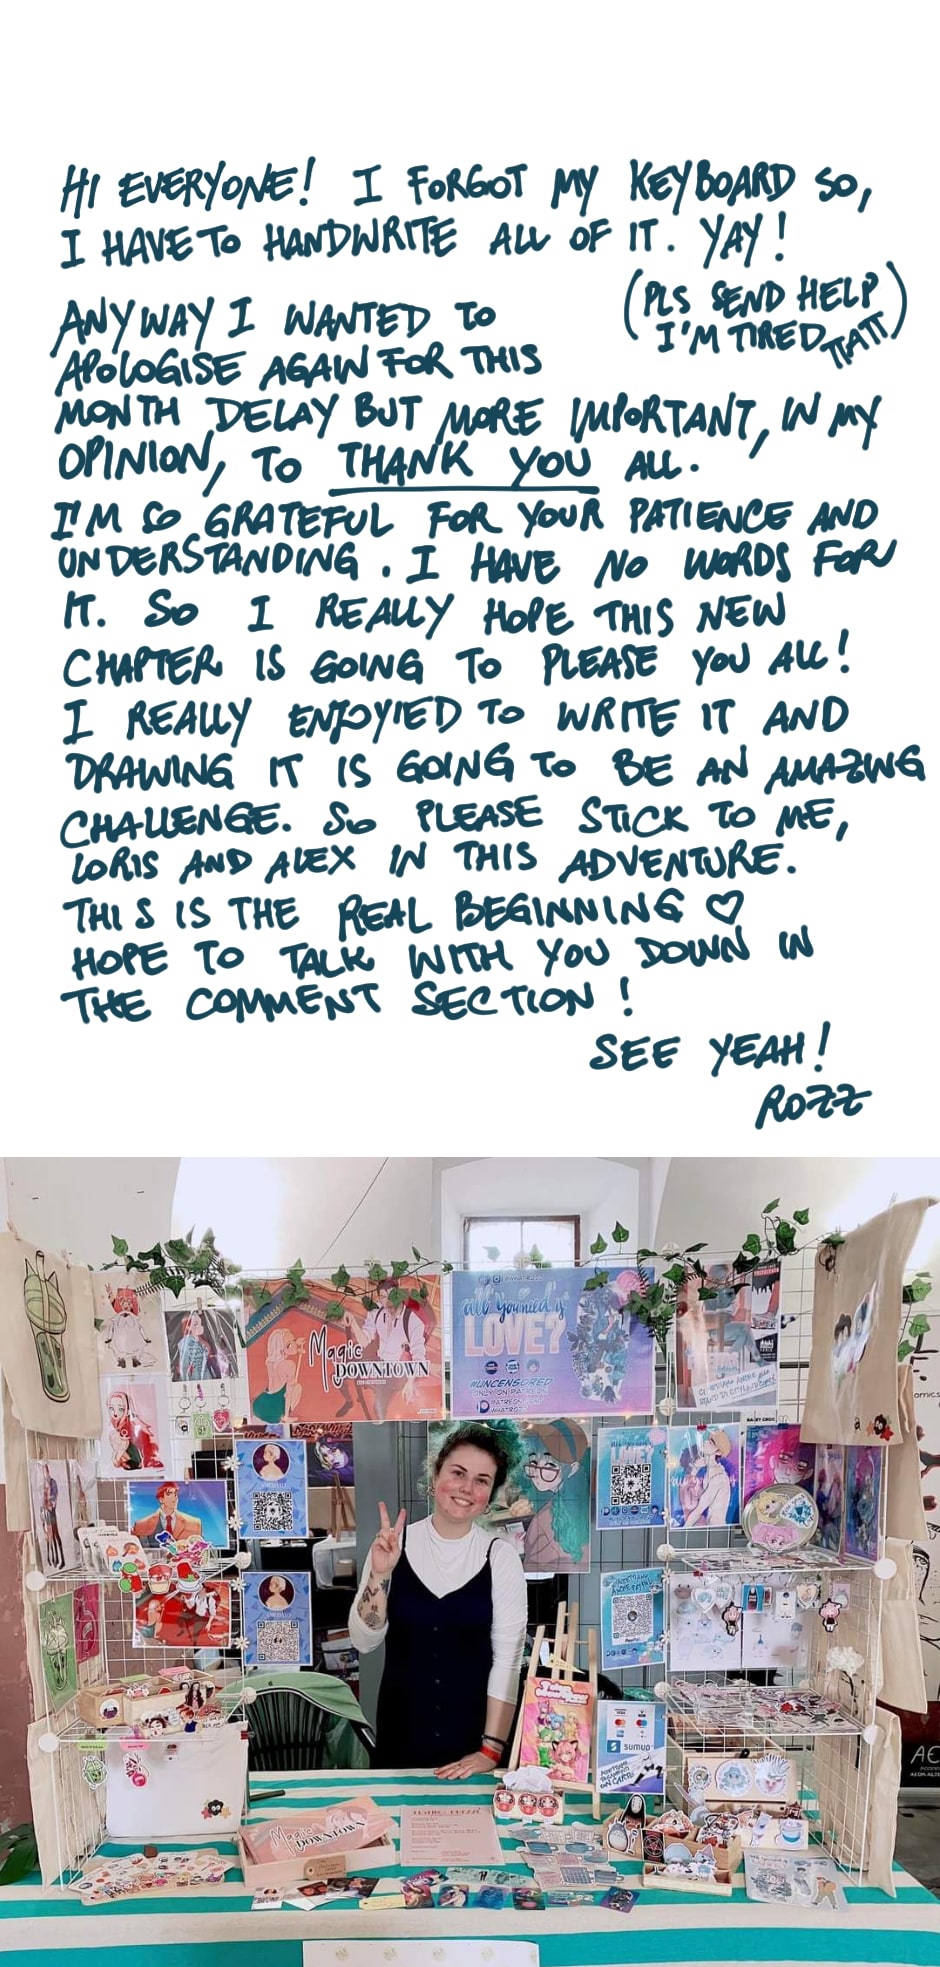 HI EVERYONE! I FORGOT MY KEYBOARD SO,
I HAVE TO HANDWRITE ALL OF IT. YAY!
(PLS SEND HELP
I'M TIRED TTATT)
ANYWAY I WANTED TO
APOLOGISE AGAIN FOR THIS
MONTH DELAY BUT MORE IMPORTANT, IN MY
OPINION, TO THANK YOU ALL.
I'M SO GRATEFUL FOR YOUR PATIENCE AND
UNDERSTANDING. I HAVE NO WORDS FOR
IT. SO I REALLY HOPE THIS NEW
CHAPTER IS GOING TO PLEASE YOU ALL!
I REALLY ENJOYIED TO WRITE IT AND
DRAWING IT IS GOING TO BE AN AMAZING
CHALLENGE. SO PLEASE STICK TO ME,
LORIS AND ALEX IN THIS ADVENTURE.
THIS IS THE REAL BEGINNING ♡
HOPE TO TALK WITH YOU DOWN IN
THE COMMENT SECTION!
SEE YEAH!
ROZZ
Magic
DOWNTOWN
all You need is
LOVE?
#UNCENSORED
ONLY ON PATREON
sumup
Magic
DOWNTOWN